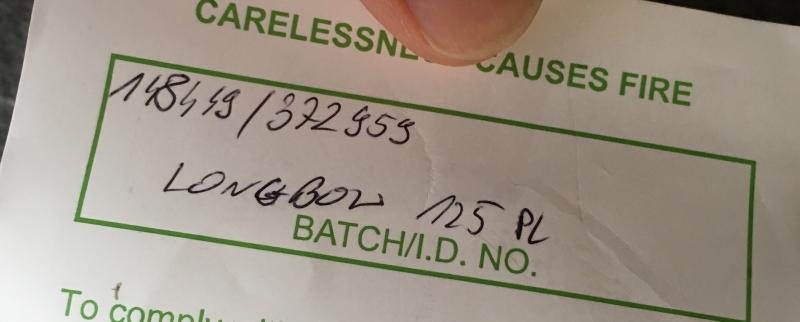 CARELESSNE CAUSES FIRE
148449/372959
LONGBOW 125 PL
BATCH/I.D. NO.
To comply